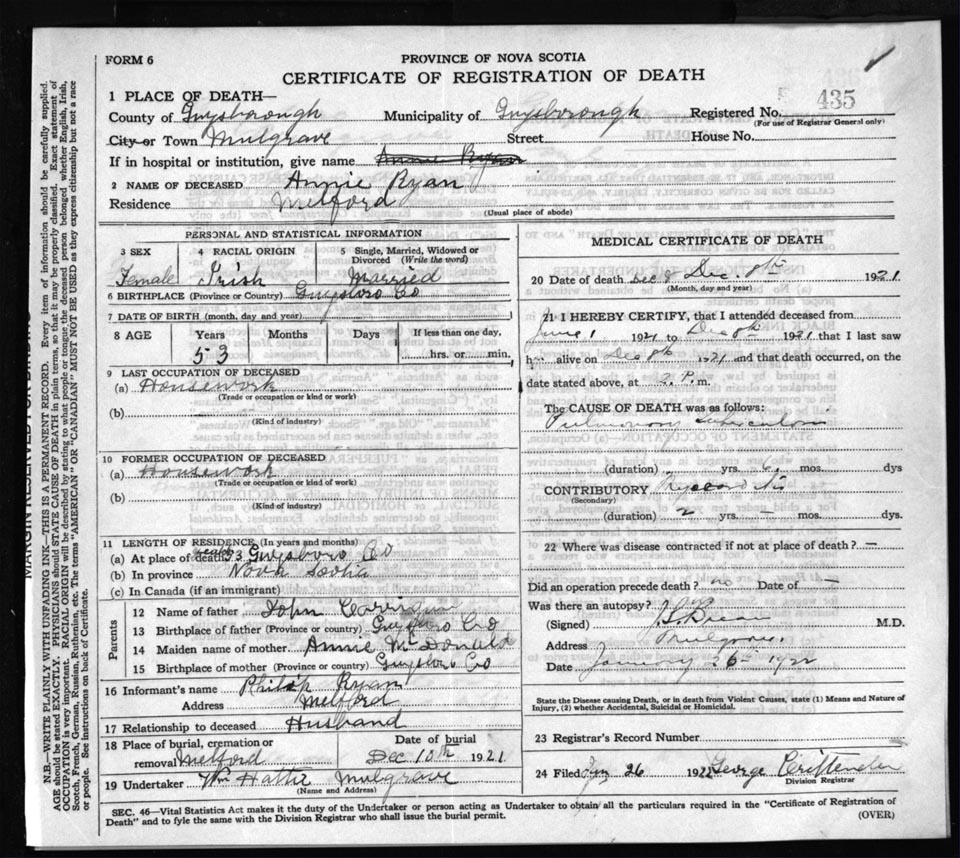 FORM 6
PROVINCE OF NOVA SCOTIA
CERTIFICATE OF REGISTRATION OF DEATH
435
1 PLACE OF DEATH—
County of Guysborough Municipality of Guysborough Registered No.
(For use of Registrar General only)
City or Town Mulgrave Street House No.
If in hospital or institution, give name Annie Ryan
2 NAME OF DECEASED Annie Ryan
Residence Melford
(Usual place of abode)
PERSONAL AND STATISTICAL INFORMATION
3 SEX Female
4 RACIAL ORIGIN Irish
5 Single, Married, Widowed or Divorced (Write the word) Married
6 BIRTHPLACE (Province or Country) Guysboro Co
7 DATE OF BIRTH (month, day and year)
8 AGE Years 53 Months Days If less than one day, hrs. or min.
9 LAST OCCUPATION OF DECEASED
(a) Housework
(Trade or occupation or kind or work)
(b)
(Kind of industry)
10 FORMER OCCUPATION OF DECEASED
(a) Housework
(Trade or occupation or kind of work)
(b)
(Kind of industry)
11 LENGTH OF RESIDENCE (In years and months)
(a) At place of death 53 Guysboro Co
(b) In province Nova Scotia
(c) In Canada (if an immigrant)
Parents
12 Name of father John
13 Birthplace of father (Province or country) Guysboro Co
14 Maiden name of mother Annie McDonald
15 Birthplace of mother (Province or country) Guysboro Co
16 Informant's name Philip Ryan
Address Melford
17 Relationship to deceased Husband
18 Place of burial, cremation or removal Melford
Date of burial Dec 10th 1921
19 Undertaker Wm Hattie Mulgrave
(Name and Address)
MEDICAL CERTIFICATE OF DEATH
20 Date of death Dec 8 Dec. 8th 1921
(Month, day and year)
21 I HEREBY CERTIFY, that I attended deceased from
June 1 1921 to Dec 8th 1921 that I last saw
h alive on Dec 8th 1921 and that death occurred, on the
date stated above, at 2 P. m.
The CAUSE OF DEATH was as follows:
Pulmonary Tuberculosis
(duration) yrs. 6 mos. dys
CONTRIBUTORY Myocarditis
(Secondary)
(duration) 2 yrs. — mos. dys.
22 Where was disease contracted if not at place of death? —
Did an operation precede death? no Date of —
Was there an autopsy?
(Signed) M.D.
Address Mulgrave
Date January 26th 1922
State the Disease causing Death, or in death from Violent Causes, state (1) Means and Nature of
Injury, (2) whether Accidental, Suicidal or Homicidal.
23 Registrar's Record Number
24 Filed Jan 26 1922 George Crittenden
Division Registrar
SEC. 46—Vital Statistics Act makes it the duty of the Undertaker or person acting as Undertaker to obtain all the particulars required in the "Certificate of Registration of
Death" and to fyle the same with the Division Registrar who shall issue the burial permit.
(OVER)
MARGIN RESERVED FOR
N.B.—WRITE PLAINLY WITH UNFADING INK—THIS IS A PERMANENT RECORD. Every item of information should be carefully supplied.
AGE should be stated EXACTLY. PHYSICIANS should STATE CAUSE OF DEATH in plain terms, so that it may be properly classified. Exact statement of
OCCUPATION is very important. RACIAL ORIGIN will be described by stating to what people or tongue the deceased person belonged, whether English, Irish,
Scotch, French, German, Russian, Ruthenian, etc. The terms "AMERICAN" OR "CANADIAN" MUST NOT BE USED as they express citizenship but not a race
or people. See instructions on back of Certificate.